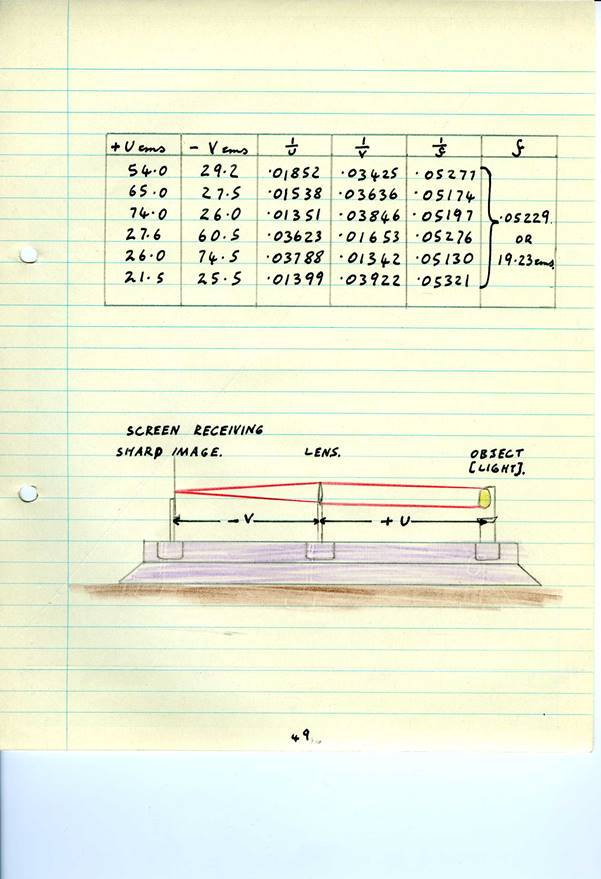 +U cms - V cms 1/U 1/V 1/f f
54.0 29.2 .01852 .03425 .05277
65.0 27.5 .01538 .03636 .05174
74.0 26.0 .01351 .03846 .05197 .05229.
27.6 60.5 .03623 .01653 .05276 OR
26.0 74.5 .03788 .01342 .05130 19.23 cms.
21.5 25.5 .01399 .03922 .05321
SCREEN RECEIVING
SHARP IMAGE. LENS. OBJECT
[LIGHT].
- V + U
49